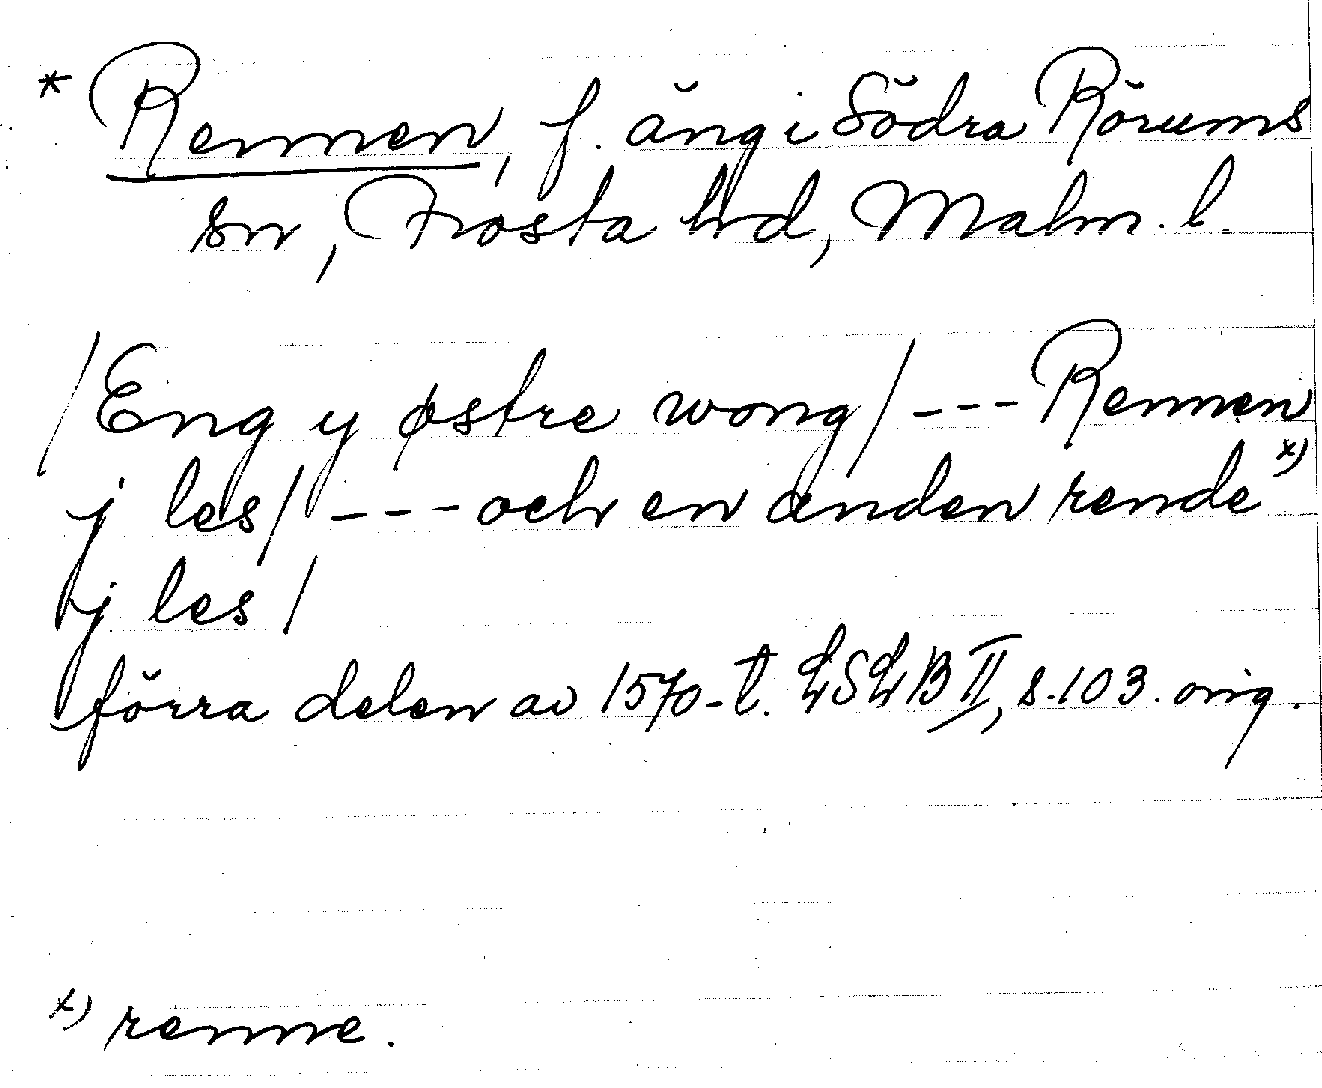 * Rennen, f. äng i Södra Rörums
sn, Frosta hd, Malm. l.
/Eng y østre wong/ --- Rennen
j les/ --- och en anden rende x)
j les/
förra delen av 1570-t. LSLB II, s. 103. orig.
x) renne.